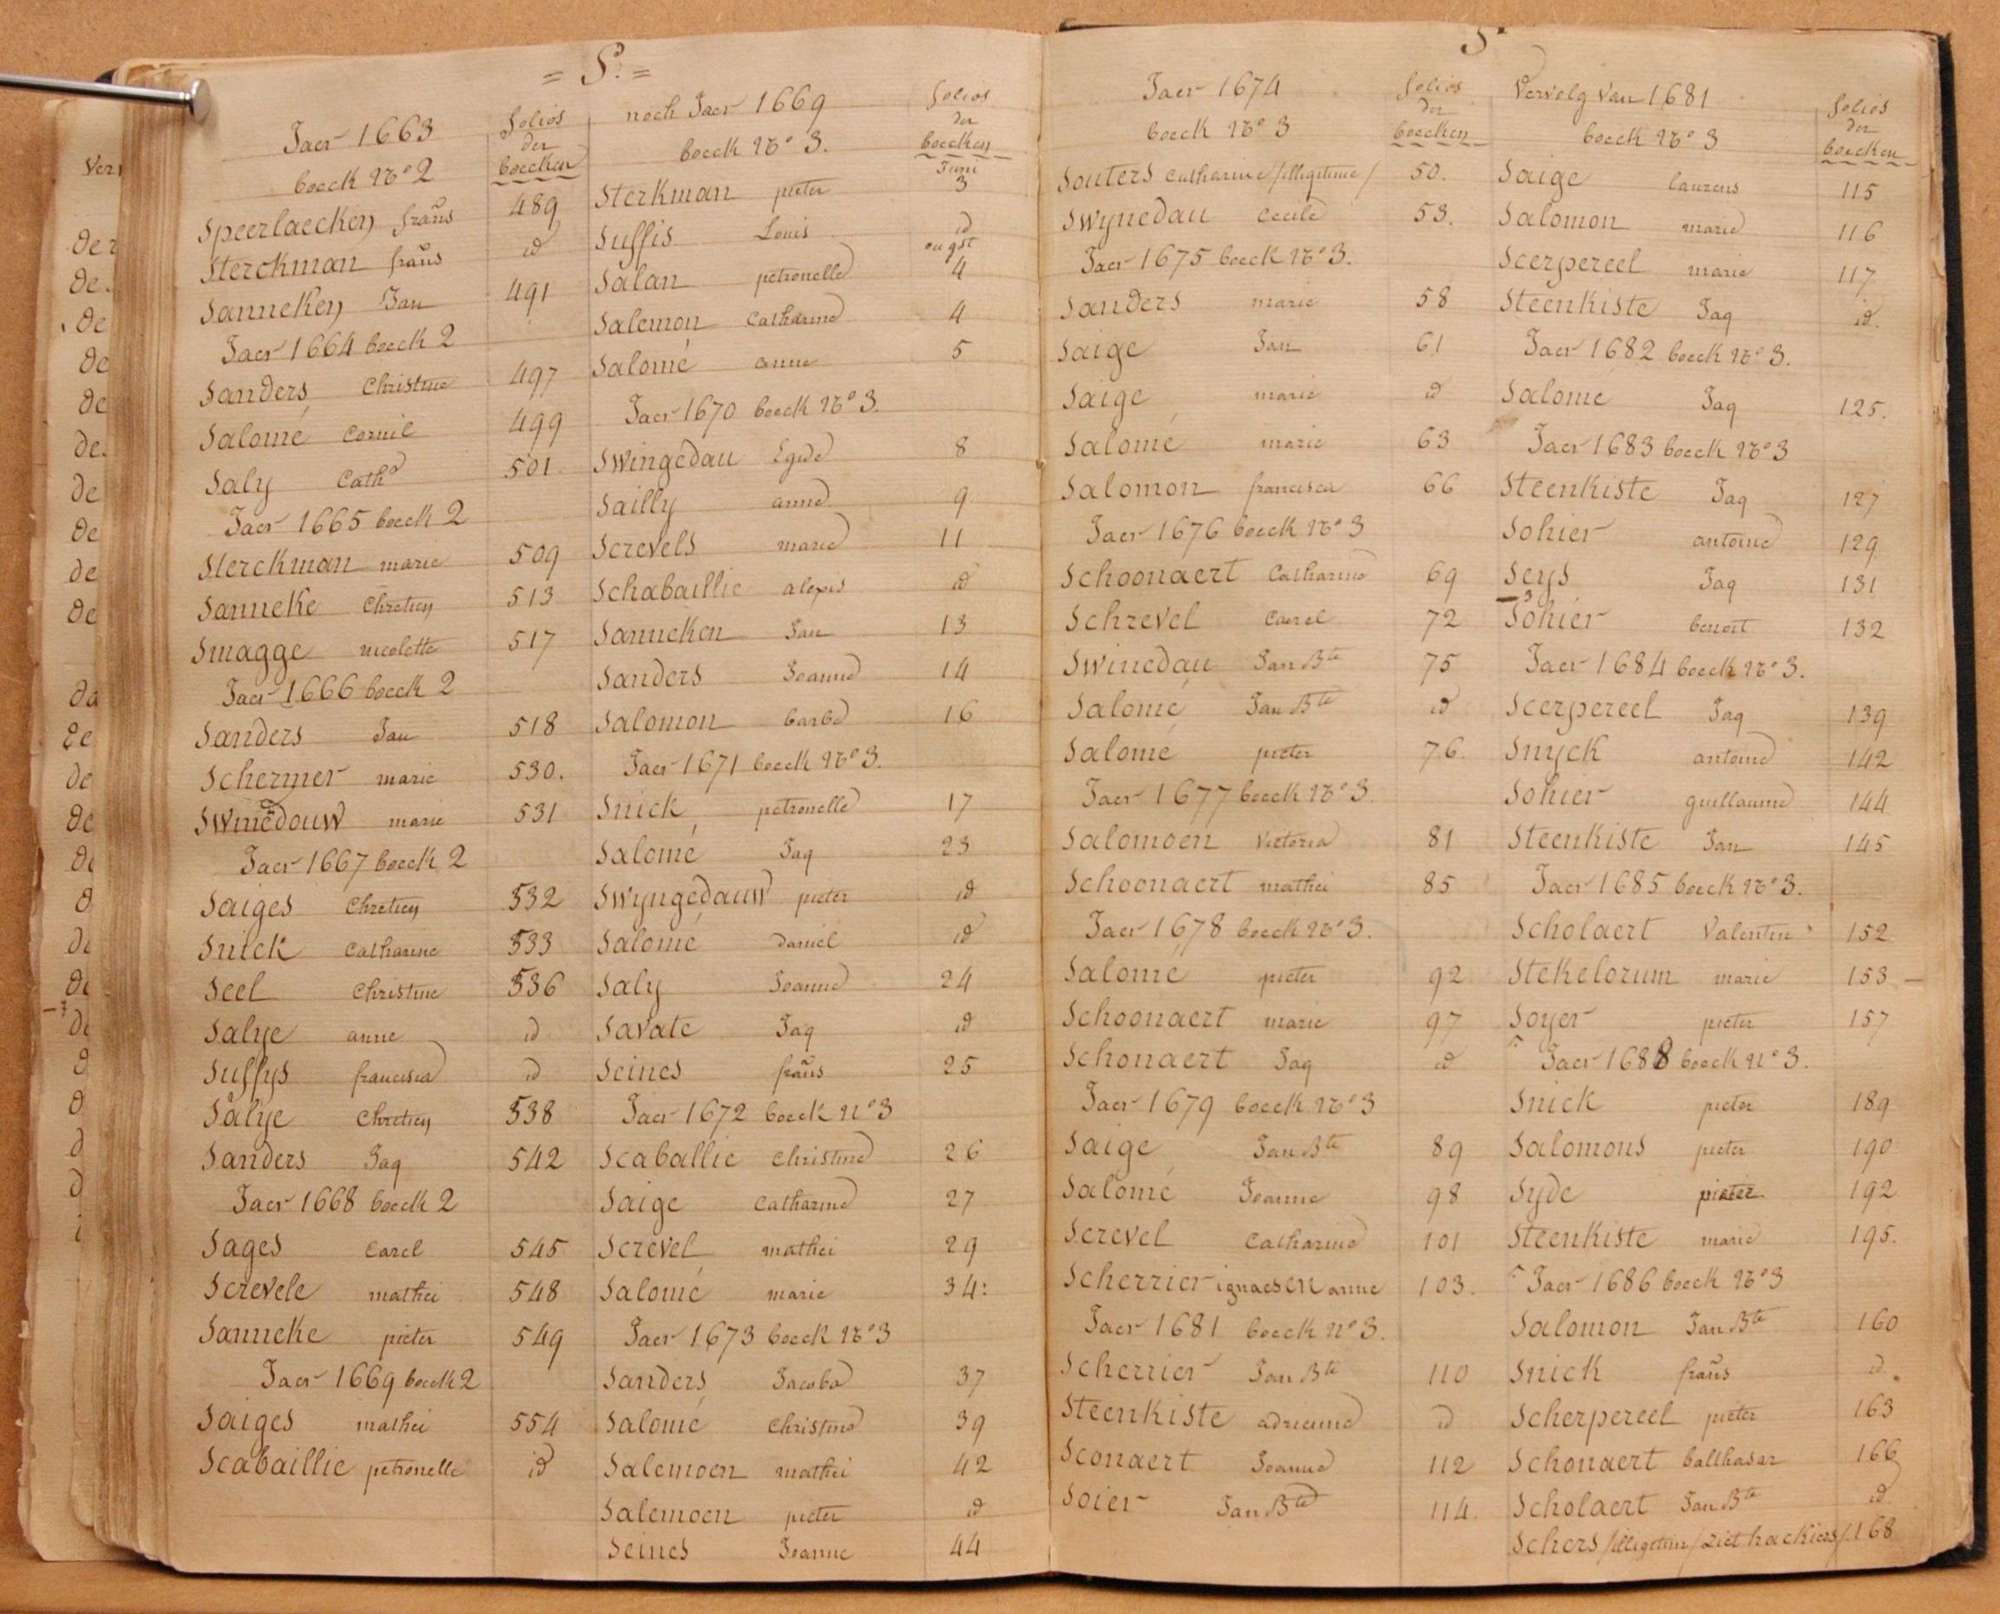 = S. =
Jaer 1663
boeck No 2
folios
der
boecken
Speerlaecken frañs 489
Sterckman frañs id
Sanneken Jan 491
Jaer 1664 boeck 2
Sanders Christine 497
Salomé Cornil 499
Saly Cath^e 501
Jaer 1665 boeck 2
Sterckman marie 509
Sanneke Chretien 513
Smagge nicolette 517
Jaer 1666 boeck 2
Sanders Jan 518
Schermer marie 530.
Swinedouw marie 531
Jaer 1667 boeck 2
Saiges Chretien 532
Snick Catharine 533
Seel Christine 536
Salye anne id
Suffys francisca id
Salye Chretien 538
Sanders Jaq 542
Jaer 1668 boeck 2
Sages Carel 545
Screvele mathei 548
Sanneke pieter 549
Jaer 1669 boeck 2
Saiges mathei 554
Scabaillie petronelle id
noch Jaer 1669
boeck No 3.
folios
der
boecken
Juni
Sterkman pieter 3
Suffis Louis id
ougst
Salan petronelle 4
Salemon Catharine 4
Salomé anne 5
Jaer 1670 boeck No 3.
Swingedau Egide 8
Sailly anne 9
Screvels marie 11
Schabaillie alexis id
Sanneken Jan 13
Sanders Joanne 14
Salomon barbe 16
Jaer 1671 boeck No 3.
Snick petronelle 17
Salomé Jaq 23
Swyngedauw pieter id
Salomé daniel id
Saly Joanne 24
Savate Jaq id
Seines frañs 25
Jaer 1672 boeck no 3
Scaballie Christine 26
Saige Catharine 27
Screvel mathei 29
Salomé marie 34:
Jaer 1673 boeck No 3
Sanders Jacoba 37
Salomé Christine 39
Salemoen mathei 42
Salemoen pieter id
Seines Joanne 44
S.
Jaer 1674
boeck No 3
folios
der
boecken
Souters Catharine /illigitime/ 50.
Swynedau Cecile 53.
Jaer 1675 boeck No 3.
Sanders marie 58
Saige Jan 61
Saige marie id
Salomé marie 63
Salomon francisca 66
Jaer 1676 boeck No 3
Schoonaert Catharine 69
Schrevel Carel 72
Swinedau Jan Bte 75
Salomé Jan Bte id
Salomé pieter 76.
Jaer 1677 boeck No 3.
Salomoen Victoria 81
Schoonaert mathei 85
Jaer 1678 boeck No 3.
Salomé pieter 92
Schoonaert marie 97
Schonaert Jaq id
Jaer 1679 boeck No 3
Saige Jan Bte 89
Salomé Joanne 98
Screvel Catharine 101
Scherrier ignaesen anne 103.
Jaer 1681 boeck no 3.
Scherrier Jan Bte 110
Steenkiste adrienne id
Sconaert Joanne 112
Soier Jan Bte 114.
Vervolg van 1681
boeck No 3
folios
der
boecken
Saige laurens 115
Salomon marie 116
Scerpereel marie 117
Steenkiste Jaq id.
Jaer 1682 boeck No 3.
Salomé Jaq 125.
Jaer 1683 boeck No 3
Steenkiste Jaq 127
Sohier antoine 129
Seys Jaq 131
Sohier benoit 132
Jaer 1684 boeck No 3.
Scerpereel Jaq 139
Snyck antoine 142
Sohier guillaume 144
Steenkiste Jan 145
Jaer 1685 boeck No 3.
Scholaert Valentin 152
Stekelorum marie 153 –
Soyer pieter 157
Jaer 1688 boeck no 3.
Snick pieter 189
Salomons pieter 190
Syde pieter 192
Steenkiste marie 195.
Jaer 1686 boeck No 3
Salomon Jan Bte 160
Snick frañs id
Scherpereel pieter 163
Schonaert balthasar 166
Scholaert Jan Bte id
Schers /illigitim/ Ziet hackiers/. 168